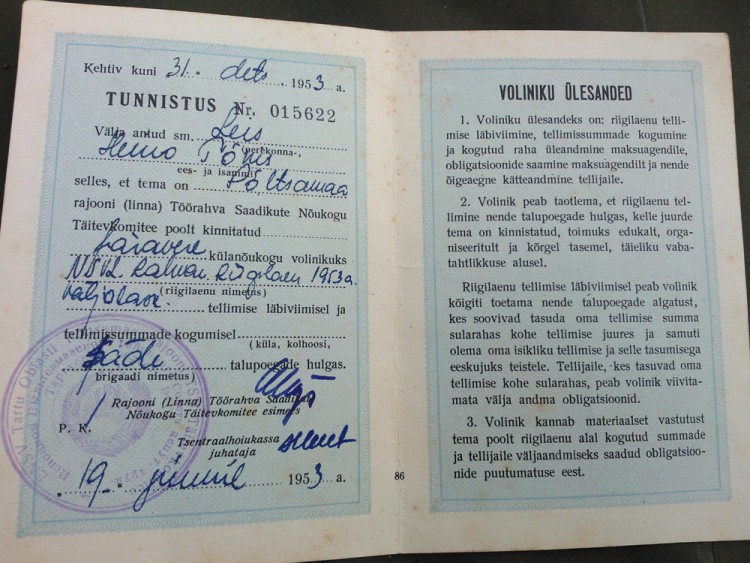 Kehtiv kuni 31. dets. 1953 a.
TUNNISTUS Nr. 015622
Välja antud sm. Leis
(perekonna-,
Heino Tõnis
ees- ja isanimi)
selles, et tema on Põltsamaa
rajooni (linna) Töörahva Saadikute Nõukogu
Täitevkomitee poolt kinnitatud
külanõukogu volinikuks
NSVL Rahvam. Riigilaen 1953 a.
väljalase (riigilaenu nimetus) tellimise läbiviimisel ja
tellimissummade kogumisel
(küla, kolhoosi,
Säde talupoegade hulgas.
brigaadi nimetus)
Rajooni (Linna) Töörahva Saadikute
Nõukogu Täitevkomitee esimees
P. K.
Tsentraalhoiukassa
juhataja
19. juunil 1953 a.
86
VOLINIKU ÜLESANDED
1. Voliniku ülesandeks on: riigilaenu telli-
mise läbiviimine, tellimissummade kogumine
ja kogutud raha üleandmine maksuagendile,
obligatsioonide saamine maksuagendilt ja nende
õigeaegne kätteandmine tellijaile.
2. Volinik peab taotlema, et riigilaenu tel-
limine nende talupoegade hulgas, kelle juurde
tema on kinnistatud, toimuks edukalt, organi-
seeritult ja kõrgel tasemel, täieliku vaba-
tahtlikkuse alusel.
Riigilaenu tellimise läbiviimisel peab volinik
kõigiti toetama nende talupoegade algatust,
kes soovivad tasuda oma tellimise summa
sularahas kohe tellimise juures ja samuti
olema oma isikliku tellimise ja selle tasumisega
eeskujuks teistele. Tellijaile, kes tasuvad oma
tellimise kohe sularahas, peab volinik viivita-
mata välja andma obligatsioonid.
3. Volinik kannab materiaalset vastutust
tema poolt riigilaenu alal kogutud summade
ja tellijaile väljaandmiseks saadud obligatsioo-
nide puutumatuse eest.